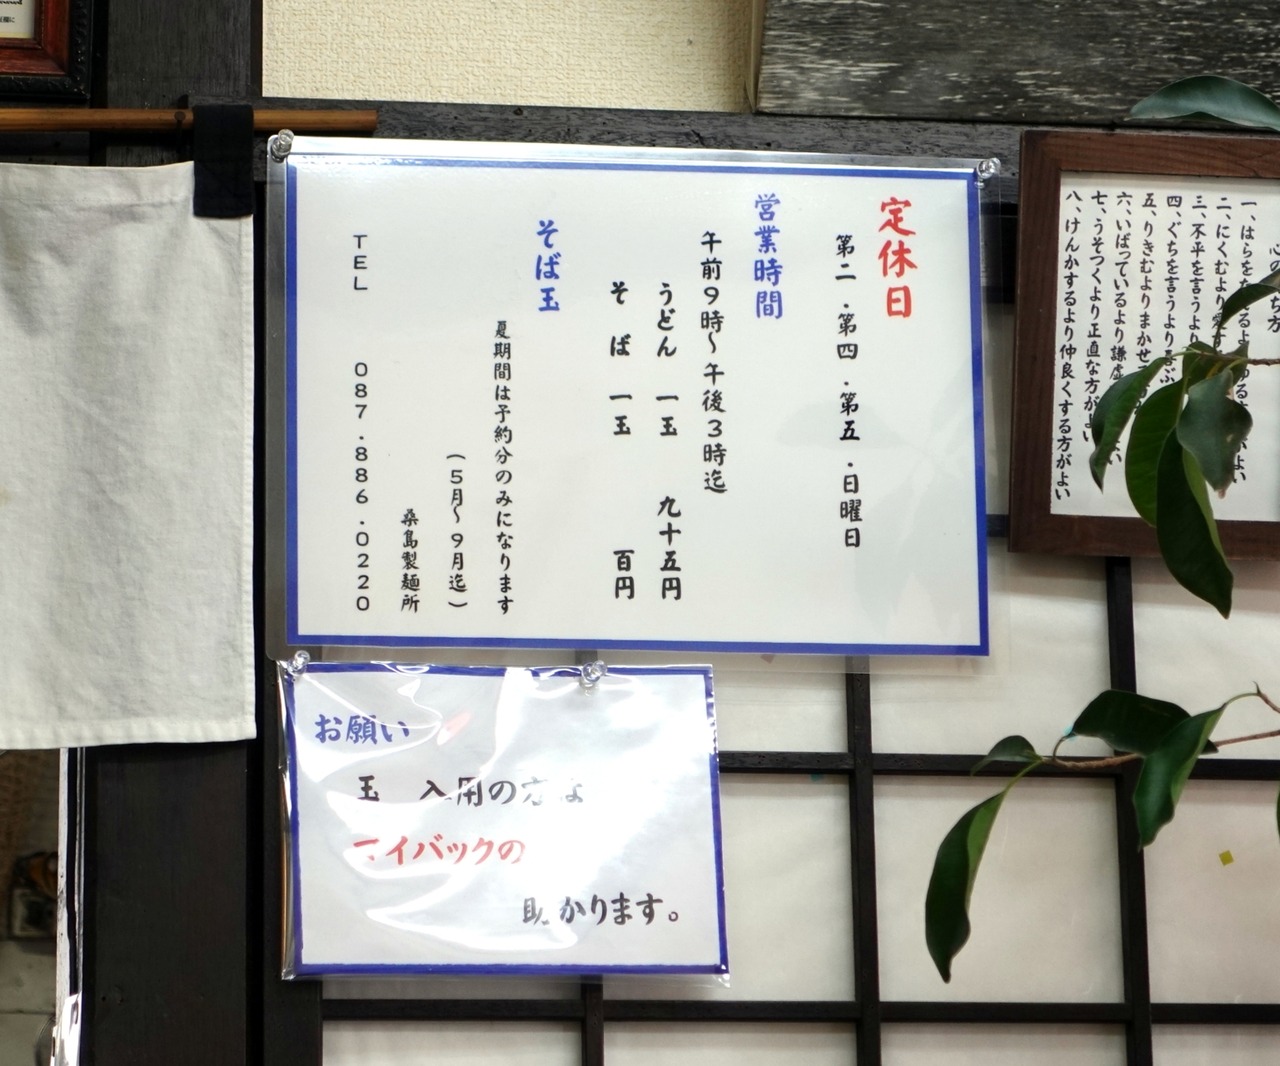 定休日
第二・第四・第五・日曜日
営業時間
午前9時〜午後3時迄
うどん 一玉 九十五円
そば 一玉 百円
そば玉
夏期間は予約分のみになります
(5月〜9月迄)
桑島製麺所
TEL 087.886.0220
お願い
玉 入用の方は
マイバックの
助かります。
一、はらを
二、にくむより
三、不平を言うより
四、ぐちを言うより喜ぶ
五、りきむよりまかせ
六、いばっているより謙虚
七、うそつくより正直な方がよい
八、けんかするより仲良くする方がよい